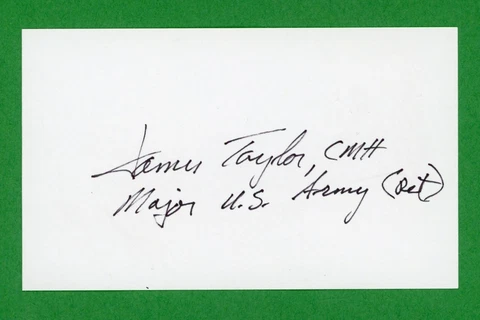 James Taylor, CMH
Major U.S. Army (Ret)